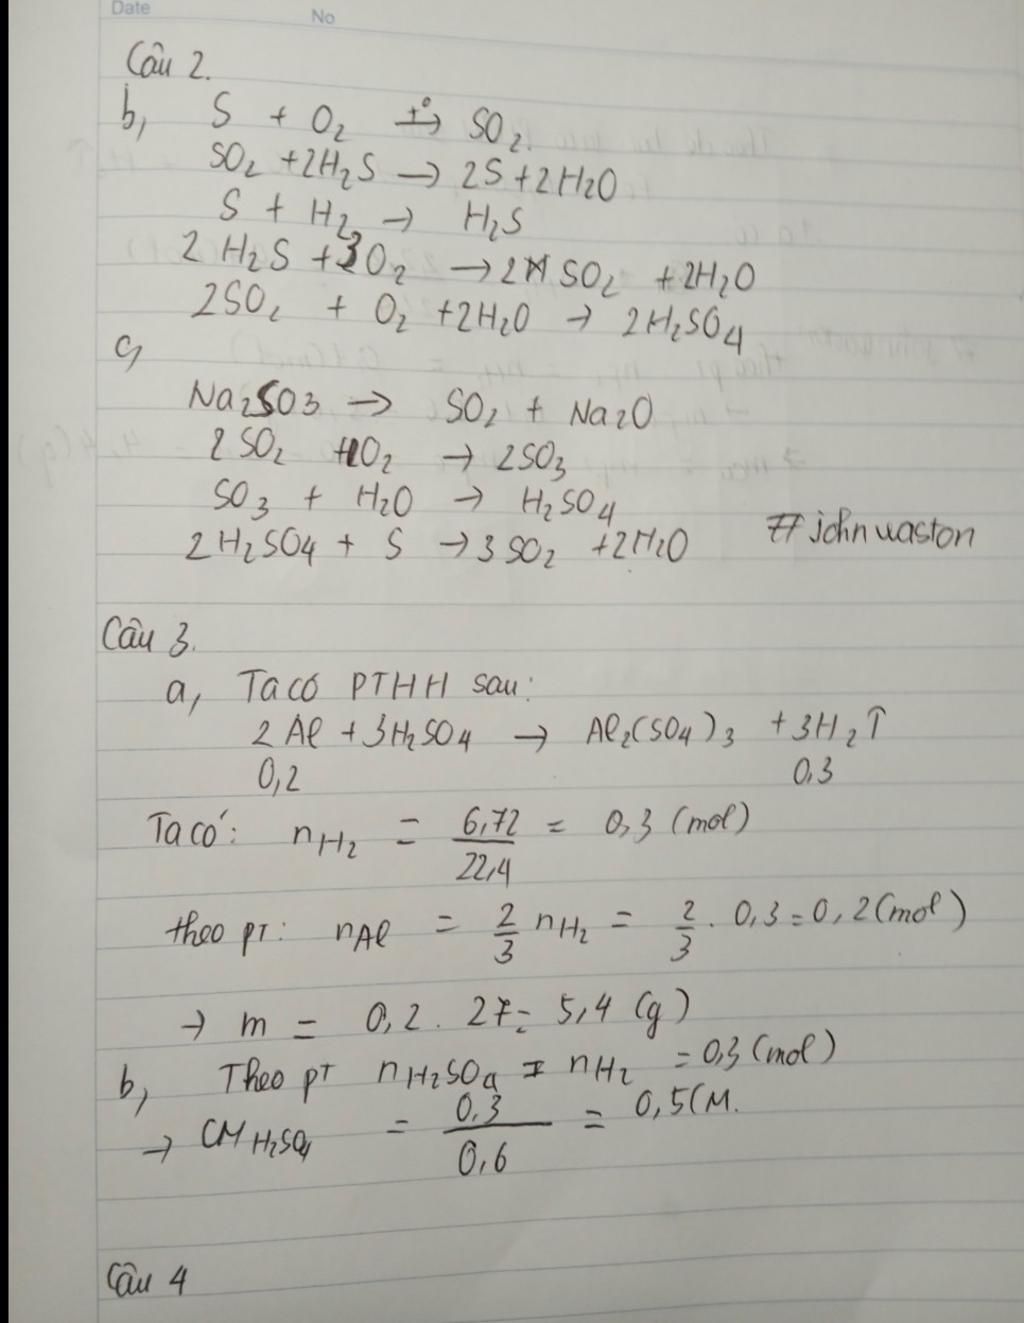 Date
No
Câu 2.
b, S + O2 t°→ SO2.
SO2 + 2H2S → 2S + 2H2O
S + H2 → H2S
2 H2S + 3O2 → 2 SO2 + 2H2O
2SO2 + O2 + 2H2O → 2H2SO4
c,
Na2SO3 → SO2 + Na2O
2SO2 + O2 → 2SO3
SO3 + H2O → H2SO4
2H2SO4 + S → 3SO2 + 2H2O #johnwaston
Câu 3.
a, Ta có PTHH sau:
2 Al + 3H2SO4 → Al2(SO4)3 + 3H2↑
0,2 0,3
Ta có: nH2 = 6,72/22,4 = 0,3 (mol)
theo pt: nAl = 2/3 nH2 = 2/3 . 0,3 = 0,2 (mol)
→ m = 0,2 . 27 = 5,4 (g)
b, Theo pt nH2SO4 = nH2 = 0,3 (mol)
→ CM H2SO4 = 0,3/0,6 = 0,5(M.
Câu 4